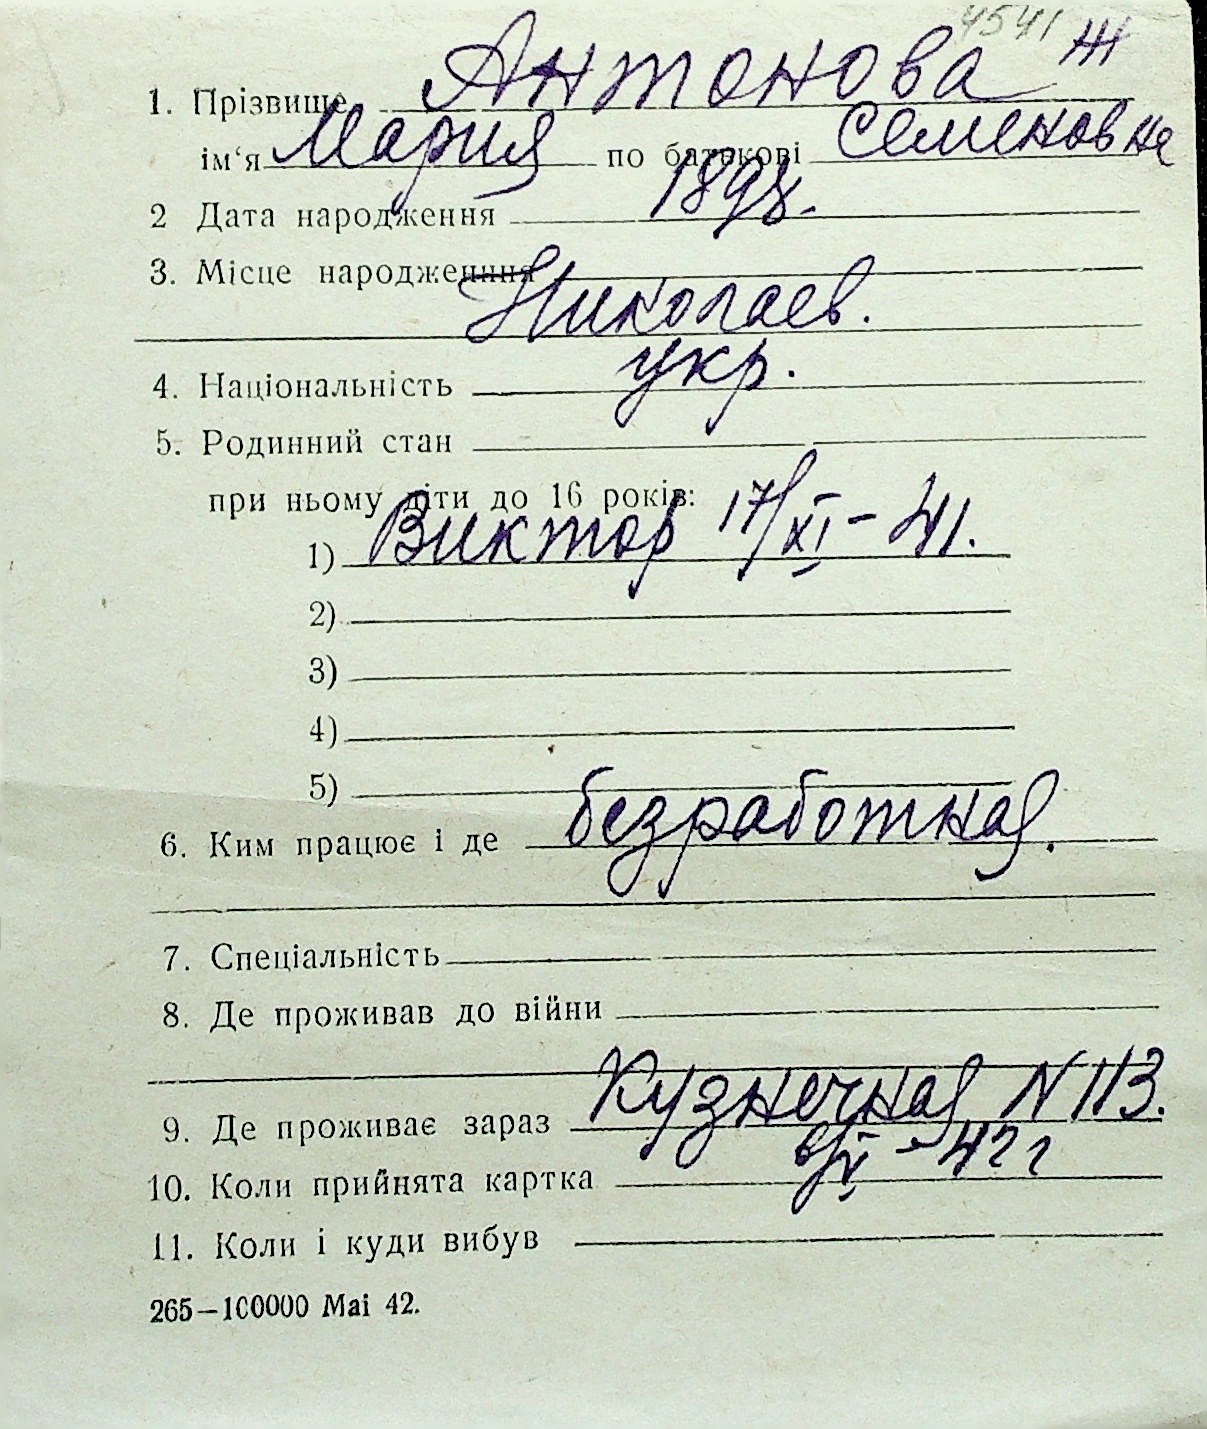 4541 Ж
1. Прізвище Антонова
ім‘я Мария по батькові Семеновна
2 Дата народження 1898.
3. Місце народження
Николаев.
4. Національність укр.
5. Родинний стан
при ньому діти до 16 років:
1) Виктор 17/XI – 41.
2)
3)
4)
5)
6. Ким працює і де безработная.
7. Спеціальність
8. Де проживав до війни
9. Де проживає зараз Кузнечная N 113.
10. Коли прийнята картка 6/X – 42 г
11. Коли і куди вибув
265—100000 Mai 42.